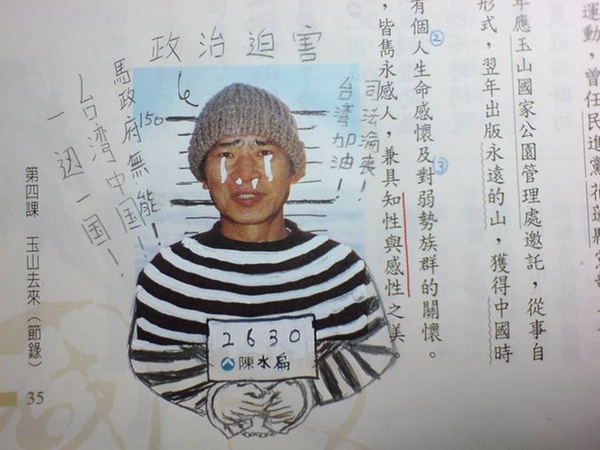 運動，曾任民進黨花蓮縣
年應玉山國家公園管理處邀託，從事自
形式，翌年出版永遠的山，獲得中國時
有個人生命感懷及對弱勢族群的關懷。
② ③
，皆雋永感人，兼具知性與感性之美。
政治迫害
司法淪喪！
台湾加油！
150
馬政府無能！！
台湾中国！
一辺一国！
2630
陳水扁
第四課 玉山去來（節錄）
35